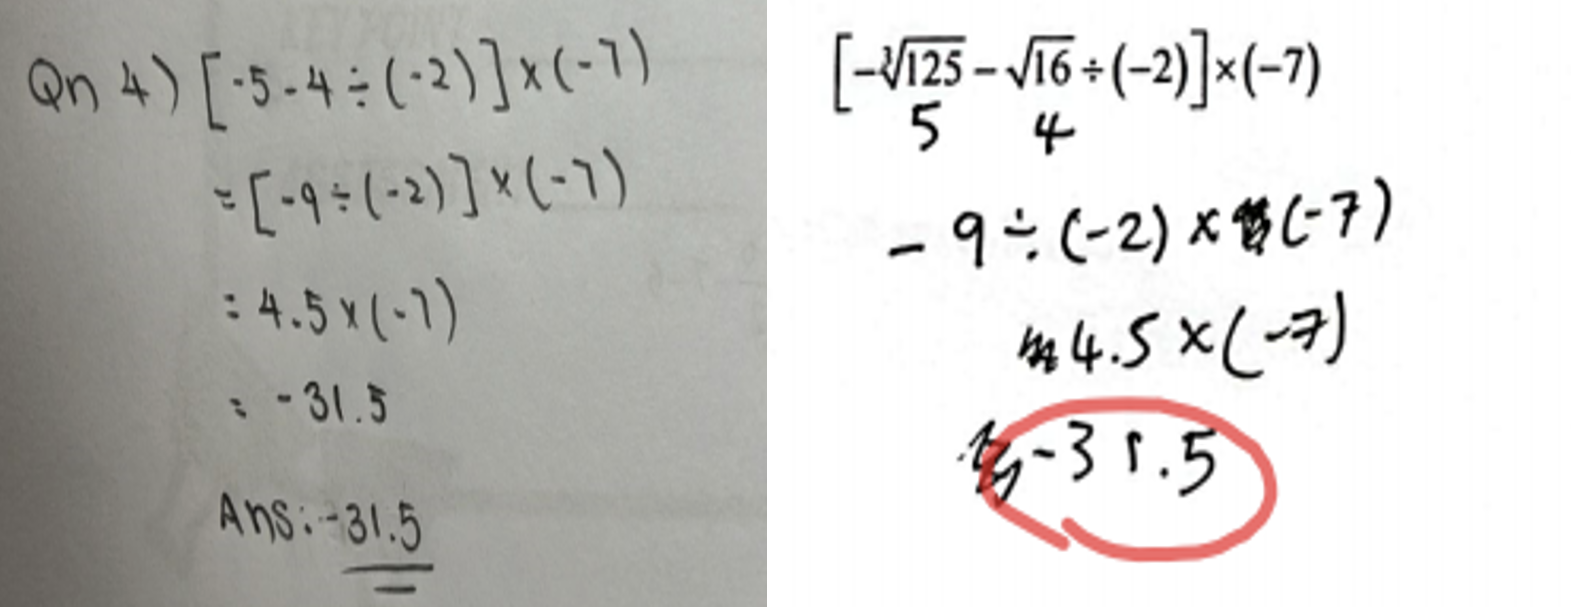 Qn 4) [-5-4÷(-2)]×(-7)
= [-9÷(-2)]×(-7)
= 4.5×(-7)
= -31.5
Ans: -31.5
[-∛125 - √16 ÷(-2)]×(-7)
5 4
-9÷(-2)×(-7)
4.5×(-7)
-31.5